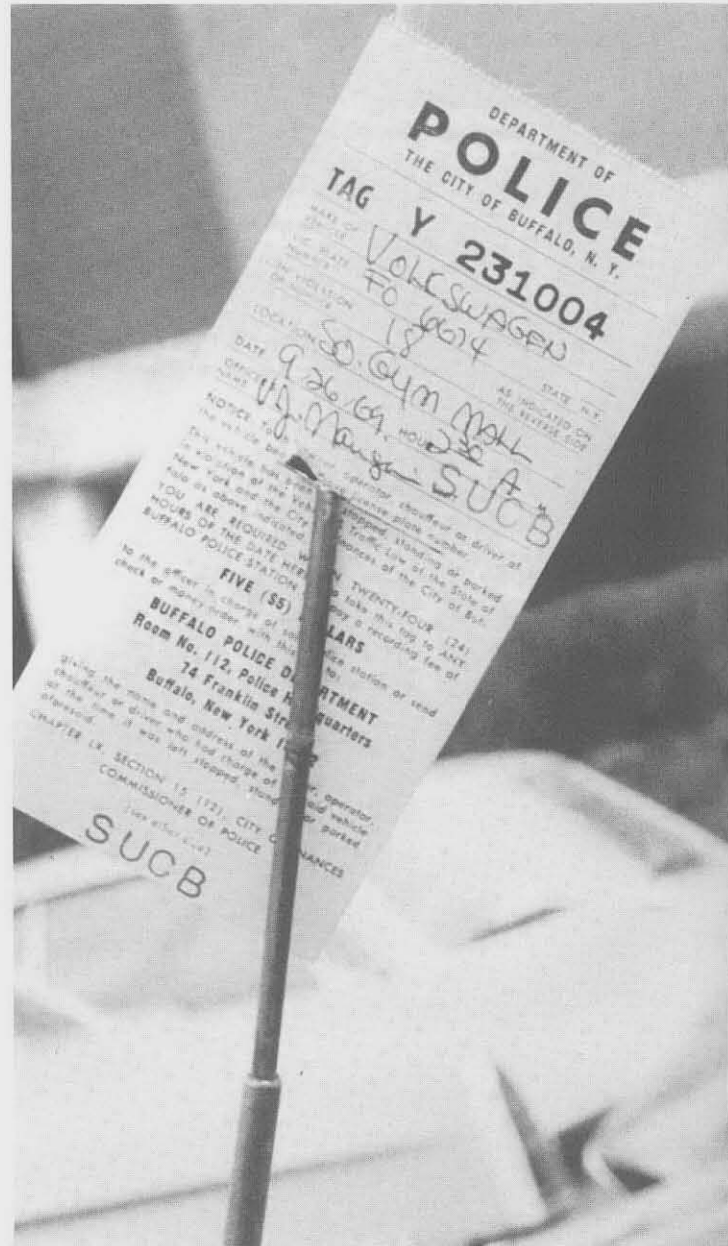 DEPARTMENT OF
POLICE
THE CITY OF BUFFALO, N. Y.
TAG Y 231004
MAKE OF VEHICLE VOLKSWAGEN
LIC. PLATE NUMBER FO 6674 STATE N.Y.
LAW VIOLATION 18 AS INDICATED ON THE REVERSE SIDE
LOCATION SO. GYM MALL
DATE 9.26.69. HOUR 2 30 A M
OFFICER'S NAME V.J. SUCB
NOTICE operator chauffeur or driver of
the vehicle license plate number.
This vehicle has been stopped, standing or parked
in violation of the Traffic Law of the State of
New York and the City Ordinances of the City of Buf-
falo as above indicated.
YOU ARE REQUIRED TWENTY-FOUR (24)
HOURS OF THE DATE to take this tag to ANY
BUFFALO POLICE STATION pay a recording fee of
FIVE ($5) DOLLARS
to the officer in charge of station or send
check or money order with
BUFFALO POLICE DEPARTMENT
Room No. 112, Police Headquarters
74 Franklin Street
Buffalo, New York
giving the name and address of the operator,
chauffeur or driver who had charge of vehicle
at the time it was left stopped, or parked
aforesaid.
CHAPTER LX, SECTION 15 CITY ORDINANCES
COMMISSIONER OF POLICE
SUCB